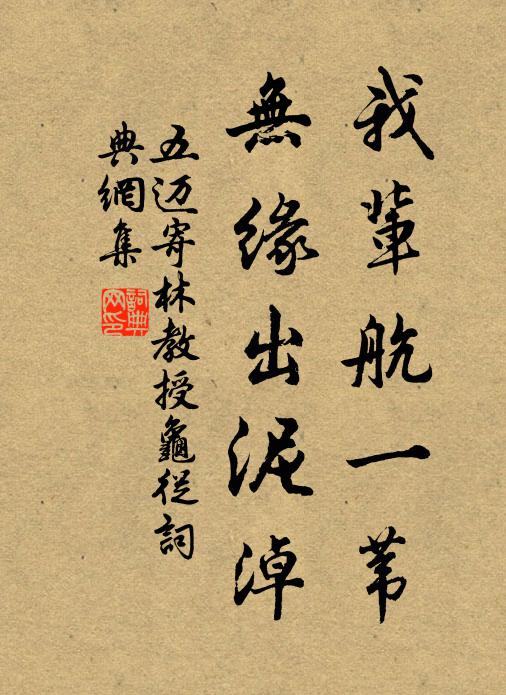 我輩航一苇
無緣出泥淖
五迈寄林教授龜從詞
典網集
詞典网印